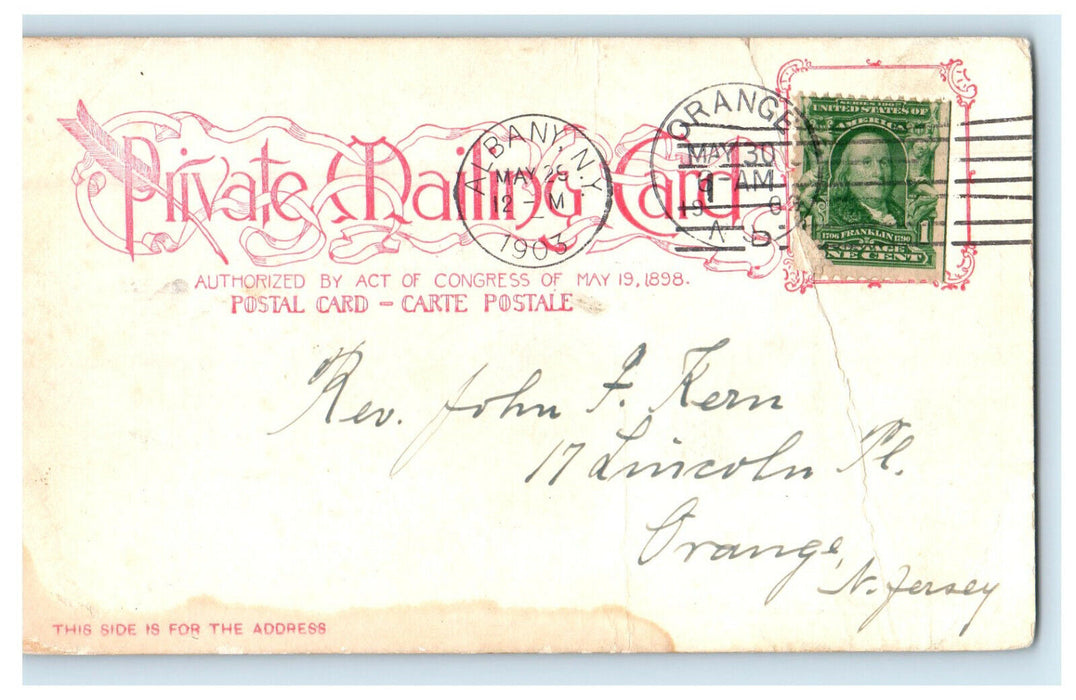 Private Mailing Card
AUTHORIZED BY ACT OF CONGRESS OF MAY 19, 1898.
POSTAL CARD – CARTE POSTALE
ALBANY, N.Y.
MAY 29
12 – M
1903
ORANGE
MAY 30
8 – AM
19 03
SERIES 1902
UNITED STATES OF
AMERICA
1706 FRANKLIN 1790
POSTAGE
ONE CENT
1
Rev. John F. Kern
17 Lincoln Pl.
Orange,
N. Jersey
THIS SIDE IS FOR THE ADDRESS